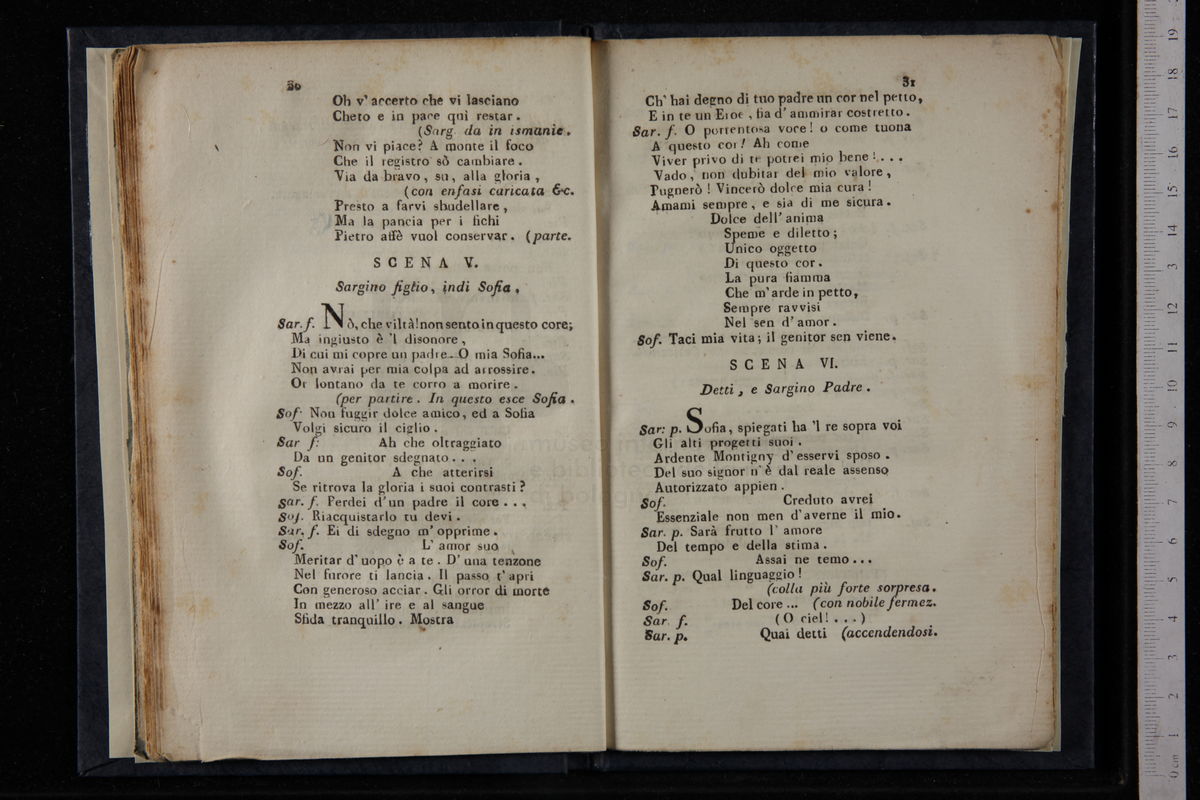 30
Oh v' accerto che vi lasciano
Cheto e in pace qui restar.
(Sarg. da in ismanie.
Non vi piace? A monte il foco
Che il registro sò cambiare.
Via da bravo, su, alla gloria,
(con enfasi caricata &c.
Presto a farvi sbudellare,
Ma la pancia per i fichi
Pietro affè vuol conservar. (parte.
SCENA V.
Sargino figlio, indi Sofia.
Sar. f. Nò, che viltà! non sento in questo core;
Ma ingiusto è 'l disonore,
Di cui mi copre un padre. O mia Sofia...
Non avrai per mia colpa ad arrossire.
Or lontano da te corro a morire.
(per partire. In questo esce Sofia.
Sof. Non fuggir dolce amico, ed a Sofia
Volgi sicuro il ciglio.
Sar f: Ah che oltraggiato
Da un genitor sdegnato...
Sof. A che atterirsi
Se ritrova la gloria i suoi contrasti?
Sar. f. Perdei d'un padre il core...
Sof. Riacquistarlo tu devi.
Sar. f. Ei di sdegno m' opprime.
Sof. L' amor suo
Meritar d' uopo è a te. D' una tenzone
Nel furore ti lancia. Il passo t' apri
Con generoso acciar. Gli orror di morte
In mezzo all' ire e al sangue
Sfida tranquillo. Mostra
31
Ch' hai degno di tuo padre un cor nel petto,
E in te un Eroe, fia d' ammirar costretto.
Sar. f. O portentosa voce! o come tuona
A questo cor! Ah come
Viver privo di te potrei mio bene!...
Vado, non dubitar del mio valore,
Pugnerò! Vincerò dolce mia cura!
Amami sempre, e sia di me sicura.
Dolce dell' anima
Speme e diletto;
Unico oggetto
Di questo cor.
La pura fiamma
Che m' arde in petto,
Sempre ravvisi
Nel sen d' amor.
Sof. Taci mia vita; il genitor sen viene.
SCENA VI.
Detti, e Sargino Padre.
Sar: p. Sofia, spiegati ha 'l re sopra voi
Gli alti progetti suoi.
Ardente Montigny d' esservi sposo.
Del suo signor n' è dal reale assenso
Autorizzato appien.
Sof. Creduto avrei
Essenziale non men d'averne il mio.
Sar. p. Sarà frutto l' amore
Del tempo e della stima.
Sof. Assai ne temo...
Sar. p. Qual linguaggio!
(colla più forte sorpresa.
Sof. Del core... (con nobile fermez.
Sar. f. (O ciel!...)
Sar. p. Quai detti (accendendosi.